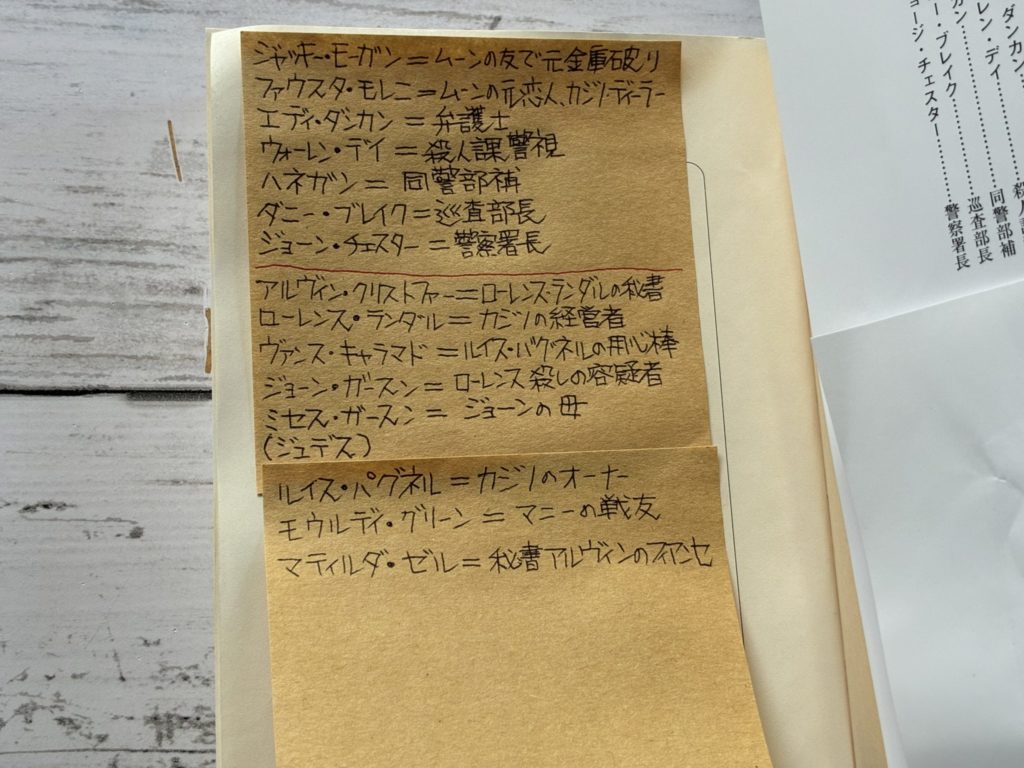 ジャッキー・モーガン＝ムーンの友で元金庫破り
ファウスタ・モレニ＝ムーンの元恋人、カジノディーラー
エディ・ダンカン＝弁護士
ウォーレン・デイ＝殺人課警視
ハネガン＝同警部補
ダニー・ブレイク＝巡査部長
ジョーン・チェスター＝警察署長
アルヴィン・クリストファー＝ローレンス・ランダルの秘書
ローレンス・ランダル＝カジノの経営者
ヴァンス・キャラマド＝ルイス・バグネルの用心棒
ジョーン・ガースン＝ローレンス殺しの容疑者
ミセス・ガースン＝ジョーンの母
(ジュデス)
ルイス・パグネル＝カジノのオーナー
モウルディ・グリーン＝マニーの戦友
マティルダ・ゼル＝秘書アルヴィンのフィアンセ
ダンカン
レン・デイ…………殺人
ガン…………同警部補
ー・ブレイク…………巡査部長
ョージ・チェスター…………警察署長